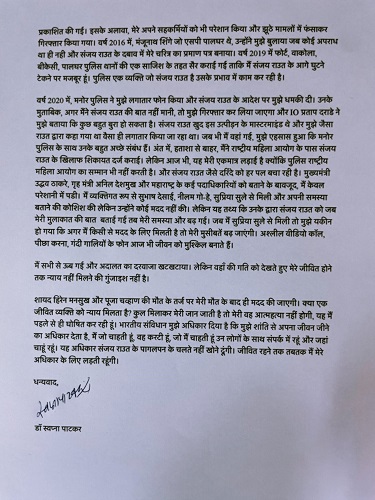 प्रकाशित की गई। इसके अलावा, मेरे अपने सहकर्मियों को भी परेशान किया और झूठे मामलों में फंसाकर
गिरफ्तार किया गया। वर्ष 2016 में, मंजूनाथ शिंगे जो एसपी पालघर थे, उन्होंने मुझे बुलाया जब कोई अपराध
था ही नही और संजय राउत के दबाव में मेरे चरित्र का प्रमाण पत्र बनाया। वर्ष 2019 में फोर्ट, वाकोला,
बीकेसी, पालघर पुलिस थानों की एक साजिश के तहत सैर कराई गई ताकि मैं संजय राउत के आगे घुटने
टेकने पर मजबूर हूं। पुलिस एक व्यक्ति जो संजय राउत है उसके प्रभाव में काम कर रही है।
वर्ष 2020 में, मनोर पुलिस ने मुझे लगातार फोन किया और संजय राउत के आदेश पर मुझे धमकी दी। उनके
मुताबिक, अगर मैंने संजय राउत की बात नहीं मानी, तो मुझे गिरफ्तार कर लिया जाएगा और IO प्रताप दराडे ने
मुझे बताया कि कुछ बहुत बुरा हो सकता है। संजय राउत खुद इस उत्पीड़न के मास्टरमाइंड थे और मुझे जैसा
राउत द्वारा कहा गया था वैसा ही लगातार किया जा रहा था। जब भी मैं वहां गई, मुझे एहसास हुआ कि मनोर
पुलिस के साथ उनके बहुत अच्छे संबंध हैं। अंत में, हताशा से बाहर, मैंने राष्ट्रीय महिला आयोग के पास संजय
राउत के खिलाफ शिकायत दर्ज कराई। लेकिन आज भी, यह मेरी एकमात्र लड़ाई है क्योंकि पुलिस राष्ट्रीय
महिला आयोग का सम्मान भी नहीं करती है। और संजय राउत जैसे दरिंदे को हर पल बचा रही है। मुख्यमंत्री
उद्धव ठाकरे, गृह मंत्री अनिल देशमुख और महाराष्ट्र के कई पदाधिकारियों को बताने के बावजूद, मैं केवल
परेशानी में पड़ी। मैं व्यक्तिगत रूप से सुभाष देसाई, नीलम गो-हे, सुप्रिया सुले से मिली और अपनी समस्या
बताने की कोशिश की लेकिन उन्होंने कोई मदद नहीं की। लेकिन यह तथ्य कि उनके द्वारा संजय राउत को जब
मेरी मुलाकात की बात बताई गई तब मेरी समस्या और बढ़ गई। सुप्रिया सुले से मिली तो मुझे यकीन
हो गया कि अगर मैं किसी से मदद के लिए मिलती है तो मेरी मुसीबतें बढ़ जाएंगी। अश्लील वीडियो कॉल,
पीछा करना, गंदी गालियों के फोन आज भी जीवन को मुश्किल बनाते हैं।
में सभी से ऊब गई और अदालत का दरवाजा खटखटाया। लेकिन वहाँ की गति को देखते हुए मेरे जीवित होने
तक न्याय नहीं मिलने की गुंजाइश नहीं है।
शायद हिरेन मनसुख और पूजा चव्हाण की मौत के तर्ज पर मेरी मौत के बाद ही मदद की जाएगी। क्या एक
जीवित व्यक्ति को न्याय मिलता है? कुल मिलाकर मेरी जान जाती है तो मेरी वह आत्महत्या नहीं होगी, यह मैं
पहले से ही घोषित कर रही हूं। भारतीय संविधान मुझे अधिकार दिया है कि मुझे शांति से अपना जीवन जीने
का अधिकार देता है, मैं जो चाहती हूं, वह करती हूं, जो मैं चाहती हूं उन लोगों के साथ संपर्क में रहूं और जहां
चाहूं रहूं। यह अधिकार संजय राउत के पागलपन के चलते नहीं खोने दूंगी। जीवित रहने तक तबतक में मेरे
अधिकार के लिए लड़ती रहूंगी।
धन्यवाद,
डॉ स्वप्ना पाटकर